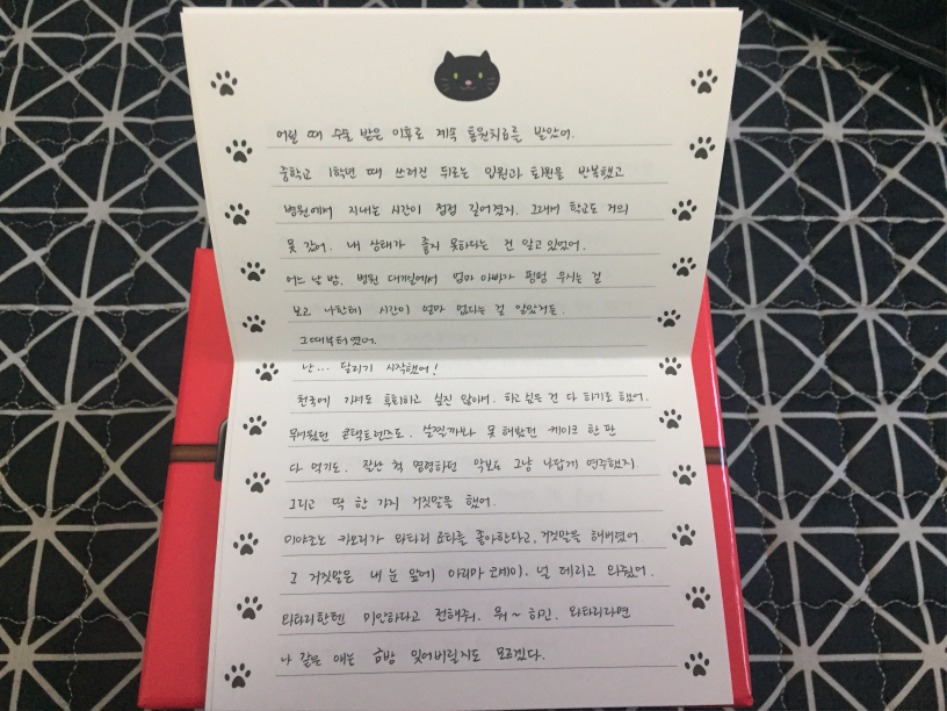 어릴 때 수술 받은 이후로 계속 통원치료를 받았어.
중학교 1학년 때 쓰러진 뒤로는 입원과 퇴원을 반복했고
병원에서 지내는 시간이 점점 길어졌지. 그래서 학교도 거의
못 갔어. 내 상태가 좋지 못하다는 건 알고 있었어.
어느 날 밤, 병원 대기실에서 엄마 아빠가 펑펑 우시는 걸
보고 나한테 시간이 얼마 없다는 걸 알았거든.
그때부터였어.
난... 달리기 시작했어!
천국에 가서도 후회하고 싶진 않아서. 하고 싶은 건 다 하기로 했어.
무서웠던 콘택트렌즈도. 살찔까봐 못 해봤던 케이크 한 판
다 먹기도. 잘난 척 명령하던 악보도 그냥 나답게 연주했지.
그리고 딱 한 가지 거짓말을 했어.
미야조노 카오리가 와타리 료타를 좋아한다고, 거짓말을 해버렸어.
그 거짓말은 내 눈 앞에 아리마 코세이. 널 데리고 와줬어.
와타리한텐 미안하다고 전해줘. 뭐~ 하긴. 와타리라면
나 같은 애는 금방 잊어버릴지도 모르겠다.